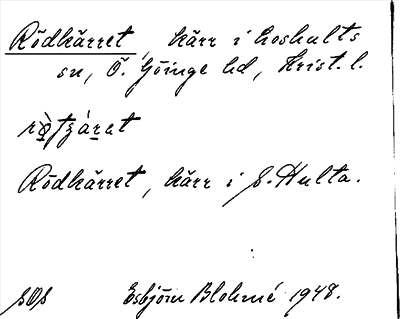 Rödkärret, kärr i Loshults
sn, Ö. Göinge hd, Krist. l.
Rödkärret, kärr i S. Hulta.
Esbjörn Blohmé 1948.